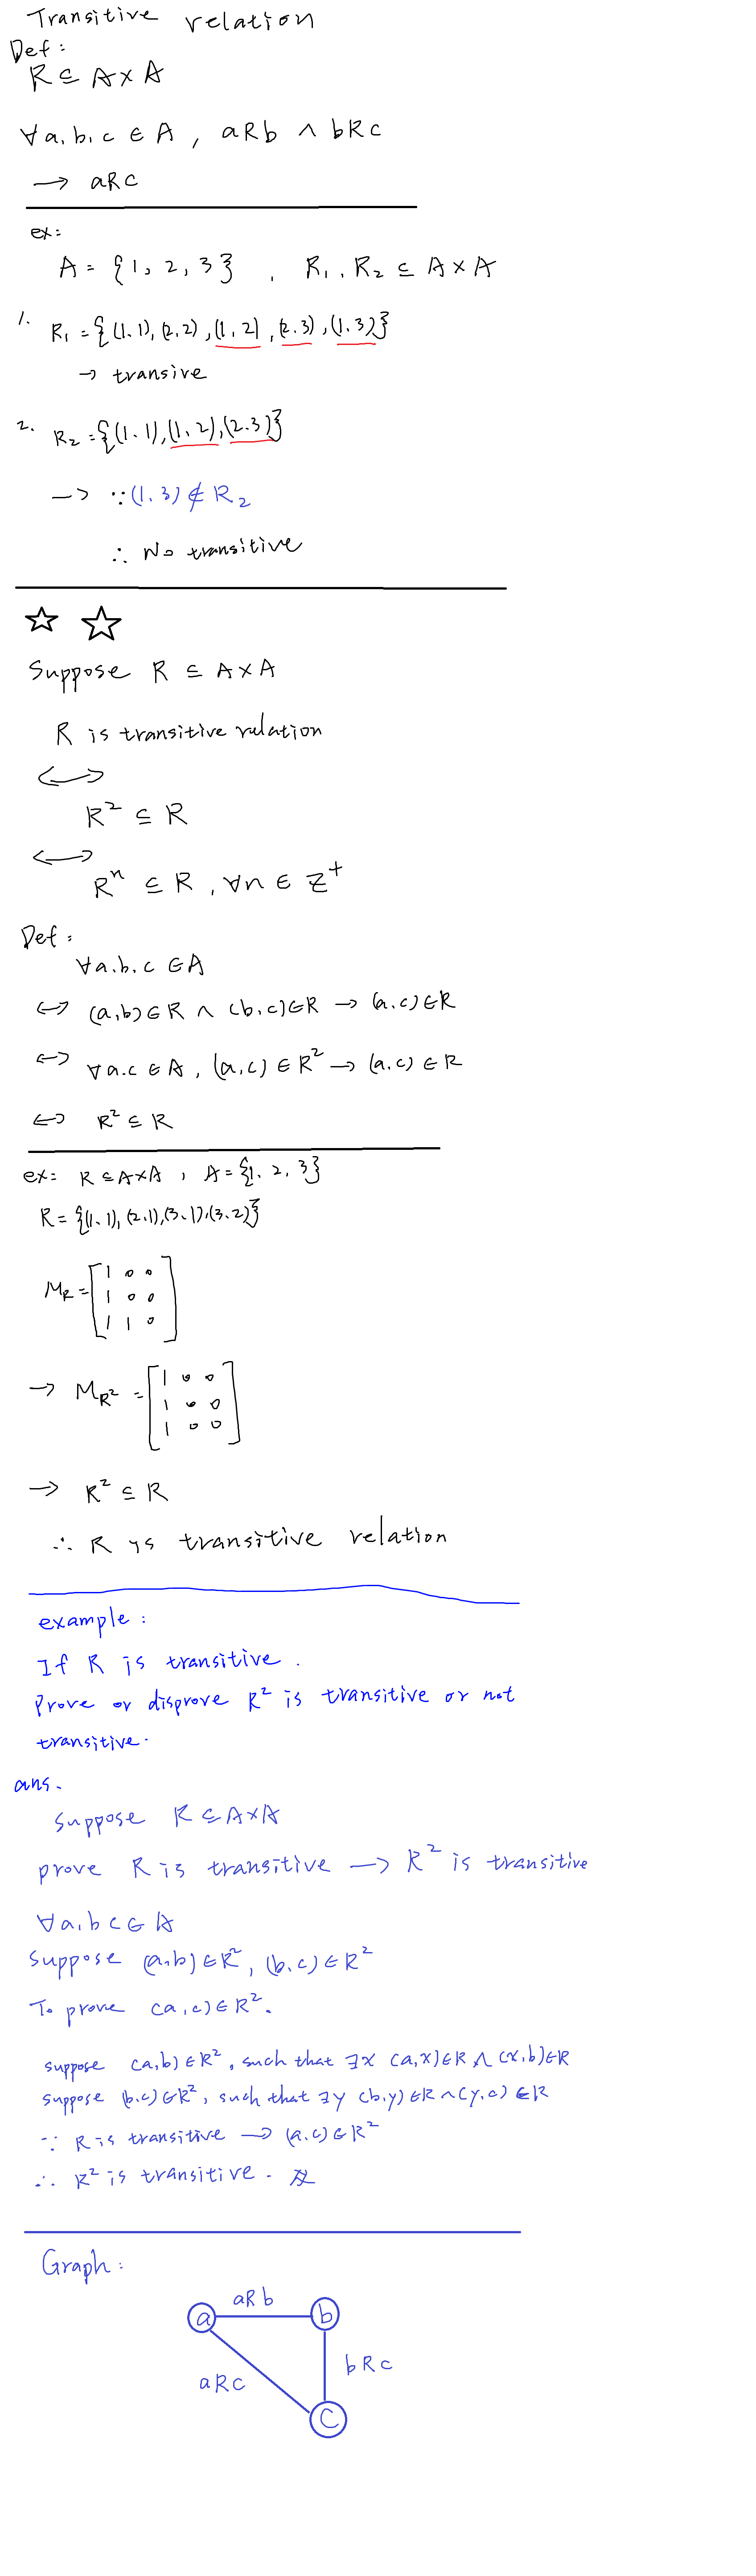 Transitive relation
Def:
R ⊆ A × A
∀a.b.c ∈ A , aRb ∧ bRc
→ aRc
ex:
A = {1, 2, 3} , R₁.R₂ ⊆ A × A
1. R₁ = {(1.1),(2.2),(1,2),(2.3),(1.3)}
→ transive
2. R₂ = {(1.1),(1.2),(2.3)}
→ ∵ (1.3) ∉ R₂
∴ No transitive
☆ ☆
Suppose R ⊆ A × A
R is transitive relation
↔
R² ⊆ R
↔
Rⁿ ⊆ R , ∀n ∈ Z⁺
Def:
∀a.b.c ∈ A
↔ (a,b)∈R ∧ (b.c)∈R → (a.c)∈R
↔ ∀a.c ∈ A , (a,c) ∈ R² → (a.c) ∈ R
↔ R² ⊆ R
ex: R ⊆ A×A , A = {1. 2, 3}
R = {(1.1),(2.1),(3.1),(3.2)}
M_R = [1 0 0
1 0 0
1 1 0]
→ M_R² = [1 0 0
1 0 0
1 0 0]
→ R² ⊆ R
∴ R is transitive relation
example:
If R is transitive.
Prove or disprove R² is transitive or not
transitive.
ans.
Suppose R ⊆ A×A
prove R is transitive → R² is transitive
∀a.b c ∈ A
Suppose (a.b) ∈ R² , (b.c) ∈ R²
To prove (a,c) ∈ R².
suppose (a,b) ∈ R² , such that ∃x (a,x)∈R ∧ (x.b)∈R
suppose (b.c) ∈ R² , such that ∃y (b.y) ∈R ∧ (y.c) ∈ R
∵ R is transitive → (a.c) ∈ R²
∴ R² is transitive.
Graph:
aRb
a b
bRc
aRc
C